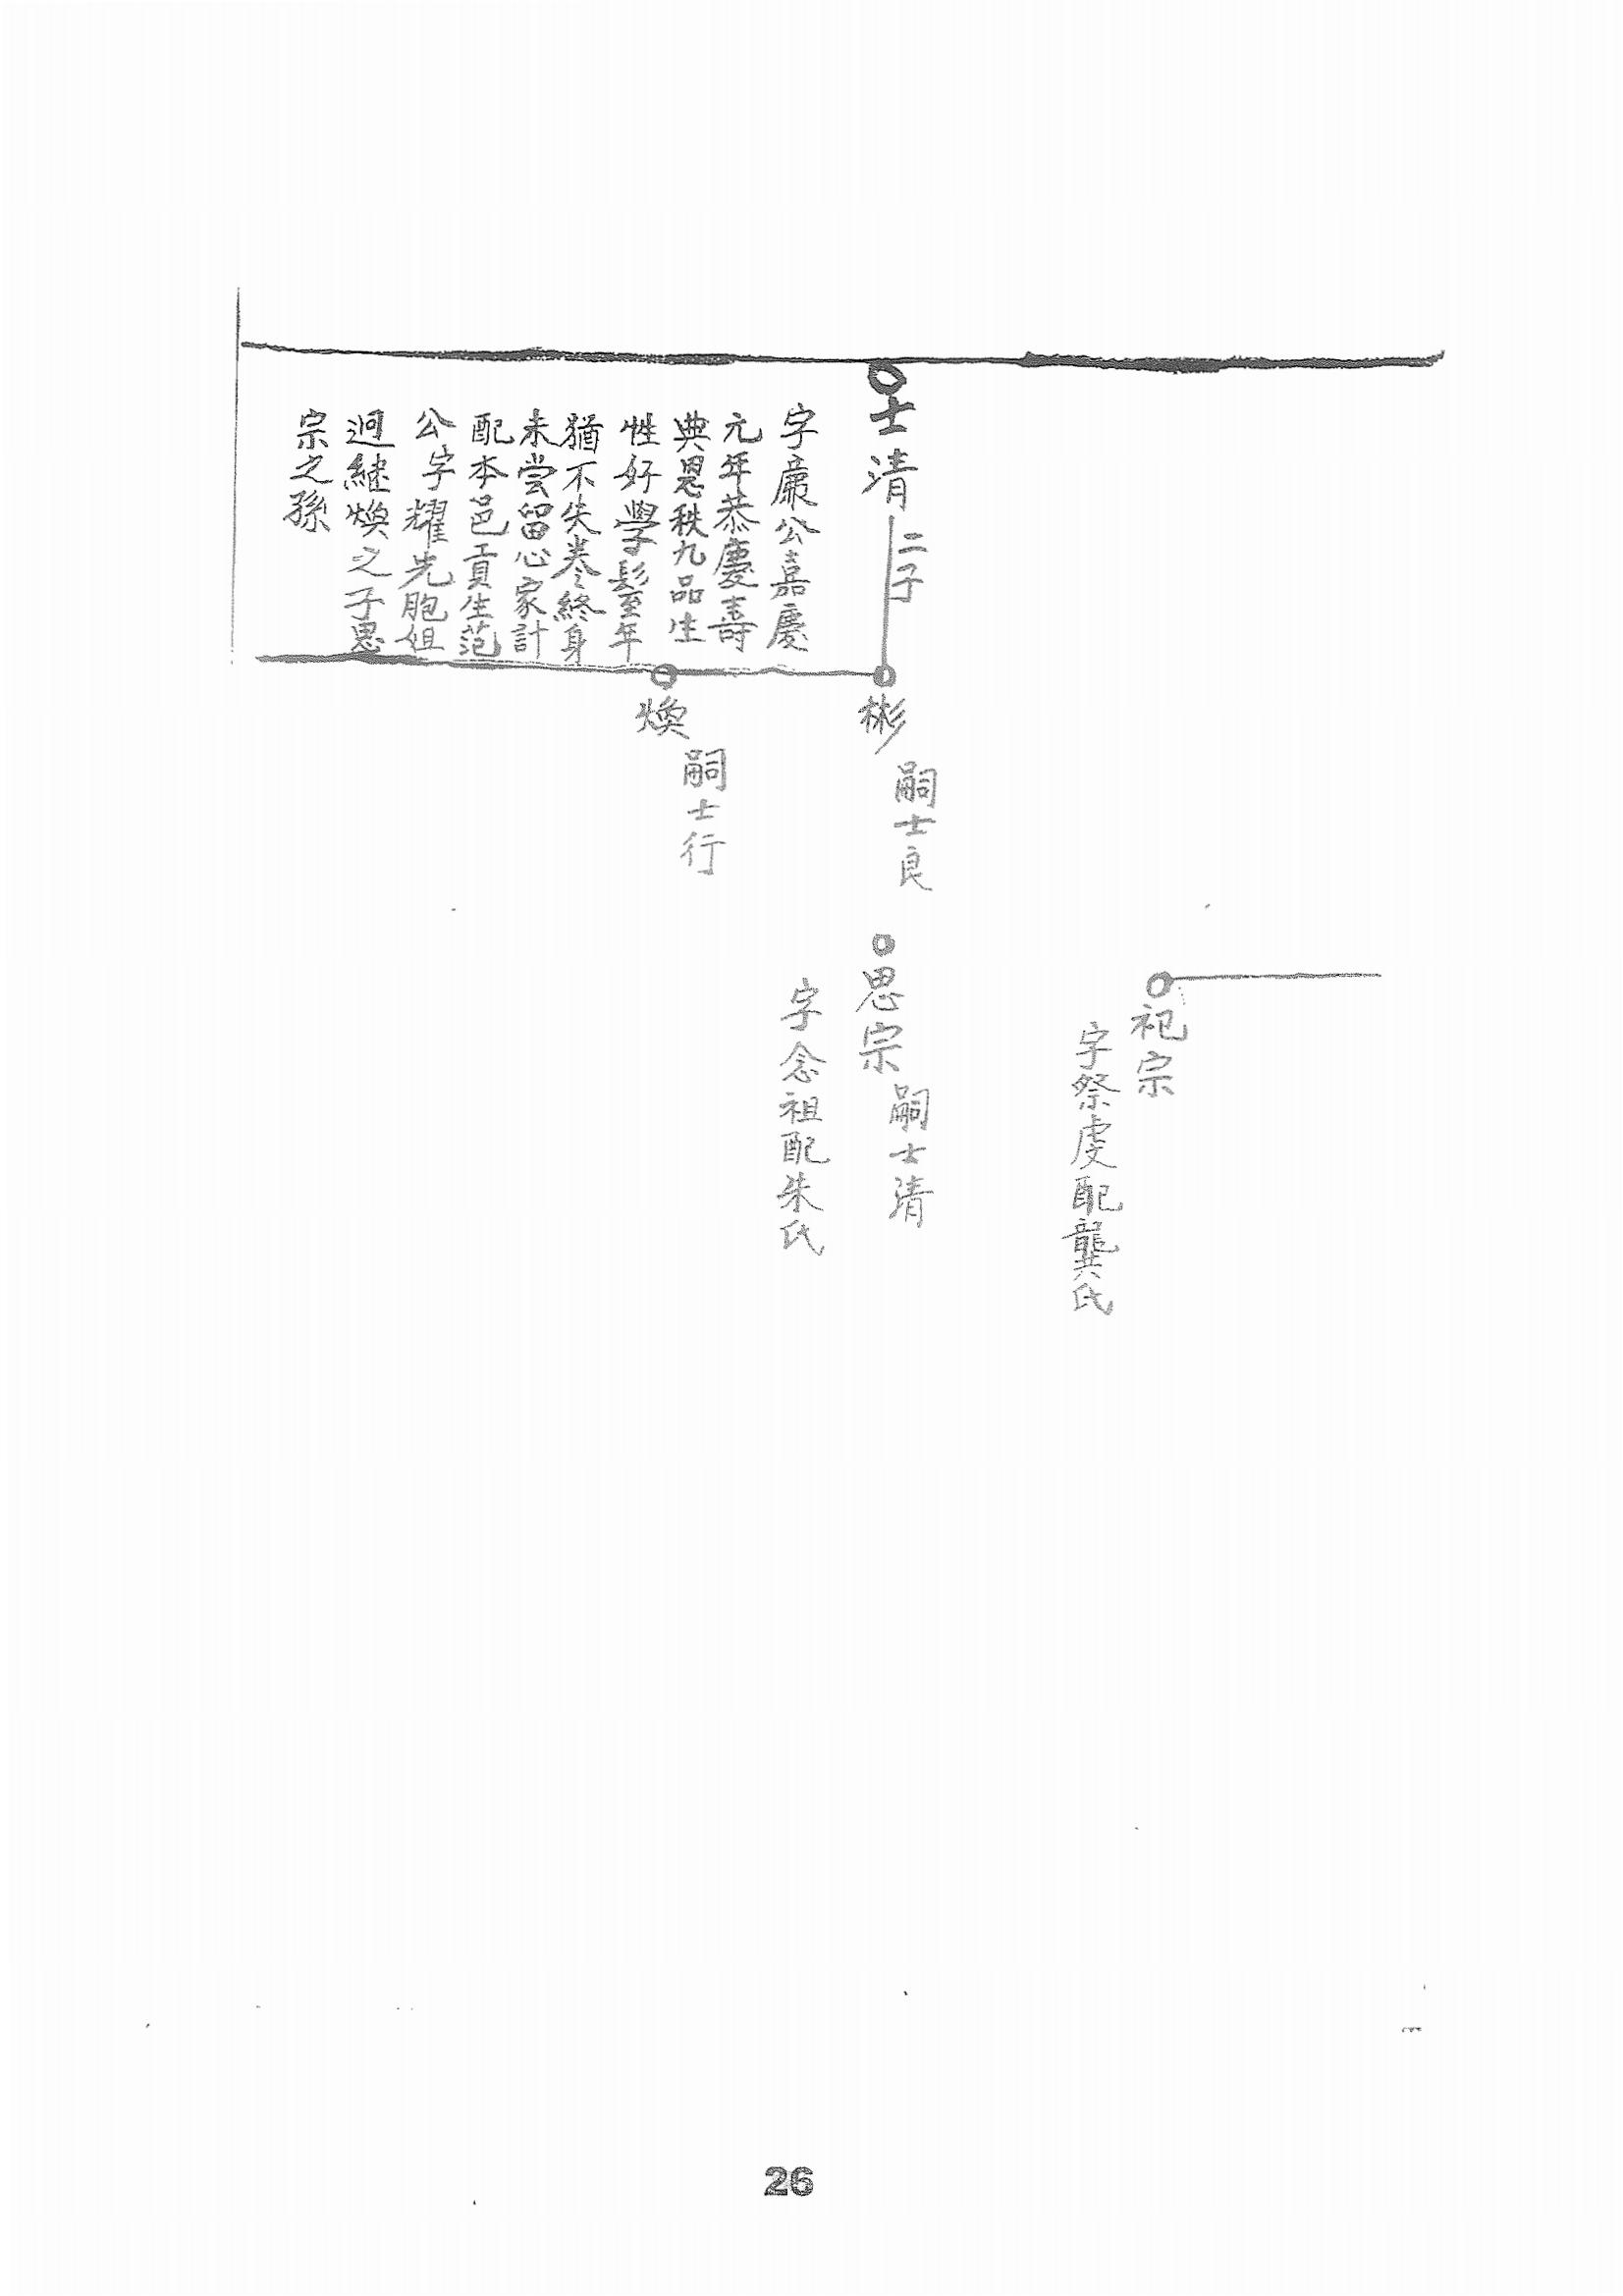 士清
二子
字廉公嘉慶
元年恭慶壽
典恩秩九品生
性好學髦至年
猶不失卷終身
未嘗留心家計
配本邑貢生范
公字耀先胞姐
迥繼煥之子思
宗之孫
彬
嗣士良
煥
嗣士行
祀宗
字祭虔配龔氏
思宗
嗣士清
字念祖配朱氏
26